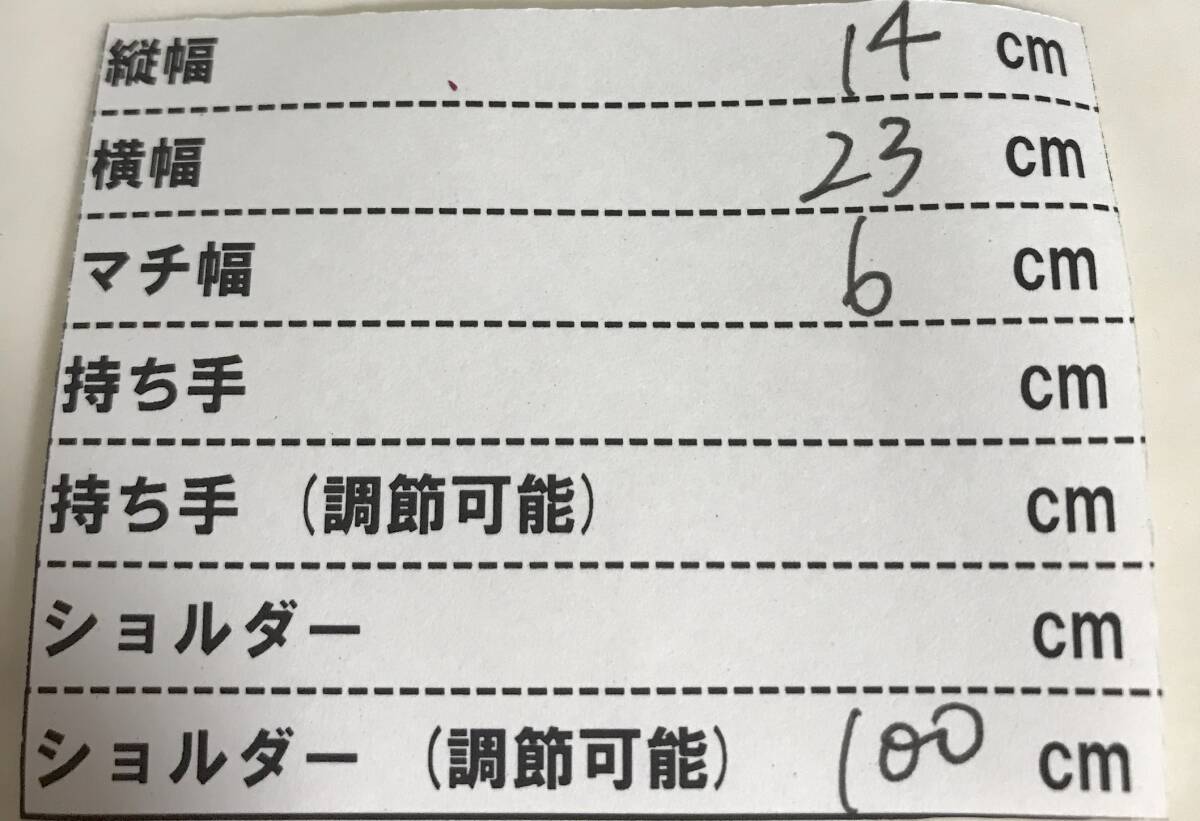 縦幅 14 cm
横幅 23 cm
マチ幅 6 cm
持ち手 cm
持ち手 (調節可能) cm
ショルダー cm
ショルダー (調節可能) 100 cm